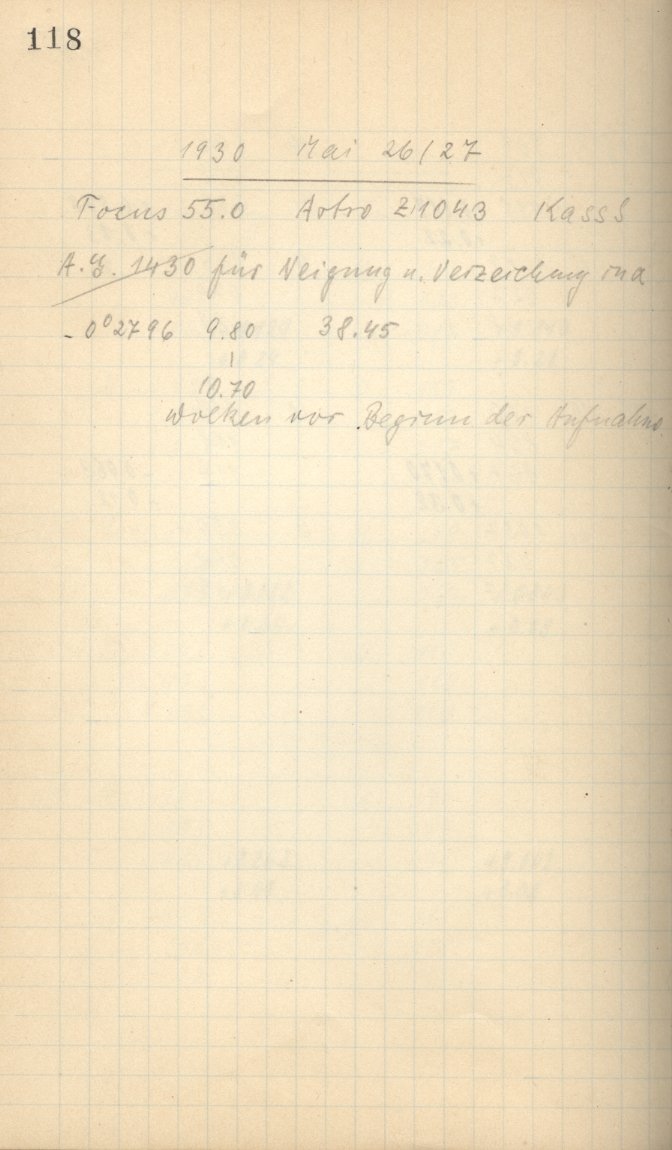 118
1930 Mai 26/27
Focus 55.0 Astro Z1043 Kass S
A.G. 1430 für Neigung u. Verzeichnung in α
-0°2796 9.80 38.45
|
10.70
Wolken vor Beginn der Aufnahme